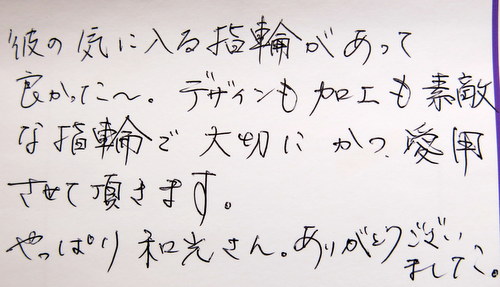 彼の気に入る指輪があって
良かった〜。デザインも加工も素敵
な指輪で大切にかつ、愛用
させて頂きます。
やっぱり和光さん。ありがとうござい
ました。